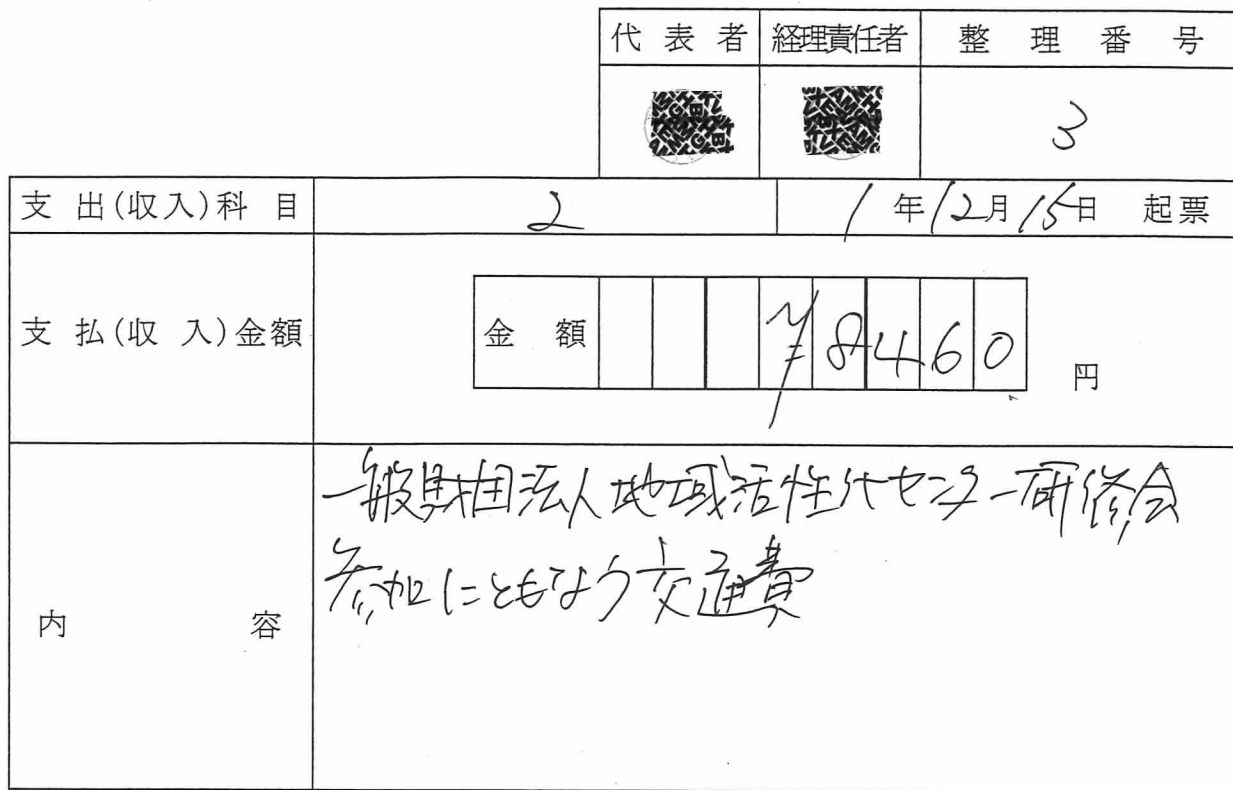 代表者 経理責任者 整理番号
3
支出(収入)科目 2 1年12月15日 起票
支払(収入)金額 金額 ¥8460 円
内容
一般財団法人地域活性化センター研修会
参加にともなう交通費